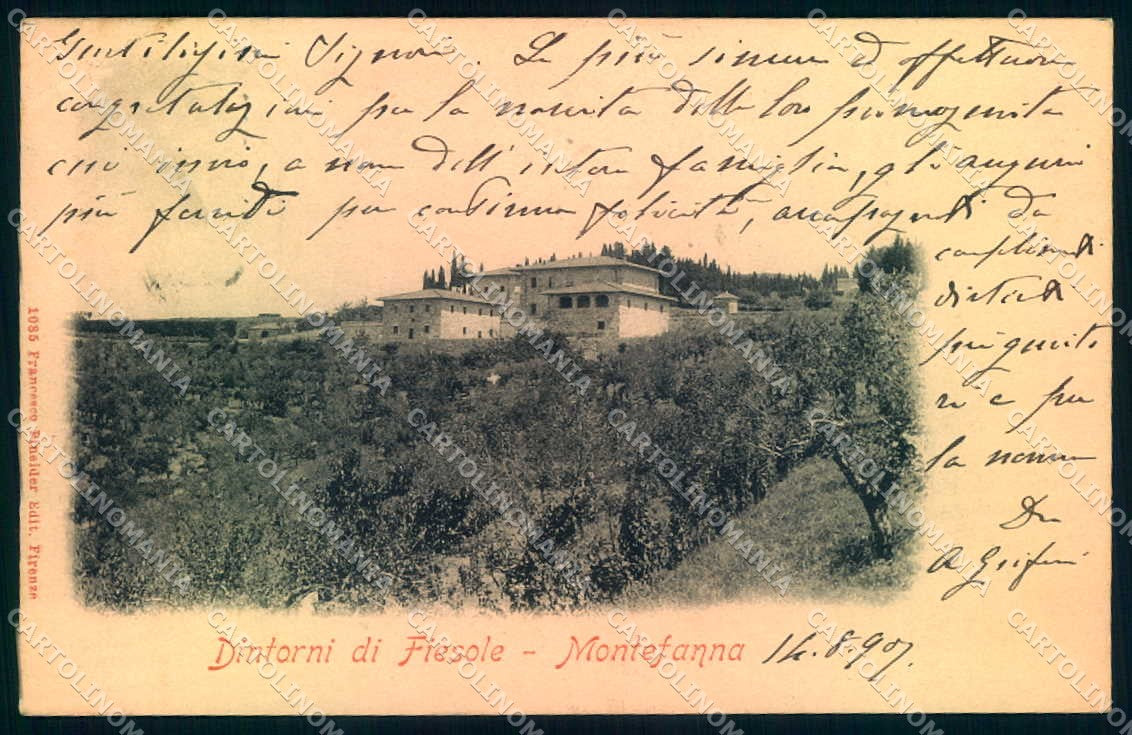 Gentilissimi Signori. Le più sincere ed affettuose
congratulazioni per la nascita della loro primogenita
cui invio, a nome dell'intera famiglia, gli auguri
più fervidi per continua felicità, accompagnati da
complimenti
distinti
per
e per
la nonna
Dev
A Grifoni
1035 Francesco Pineider Edit. Firenze
Dintorni di Fiesole - Montefanna 14.8.907.
CARTOLINOMANIA